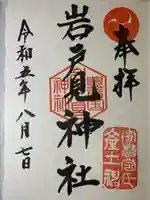 奉拝
岩戸見神社
令和五年八月七日